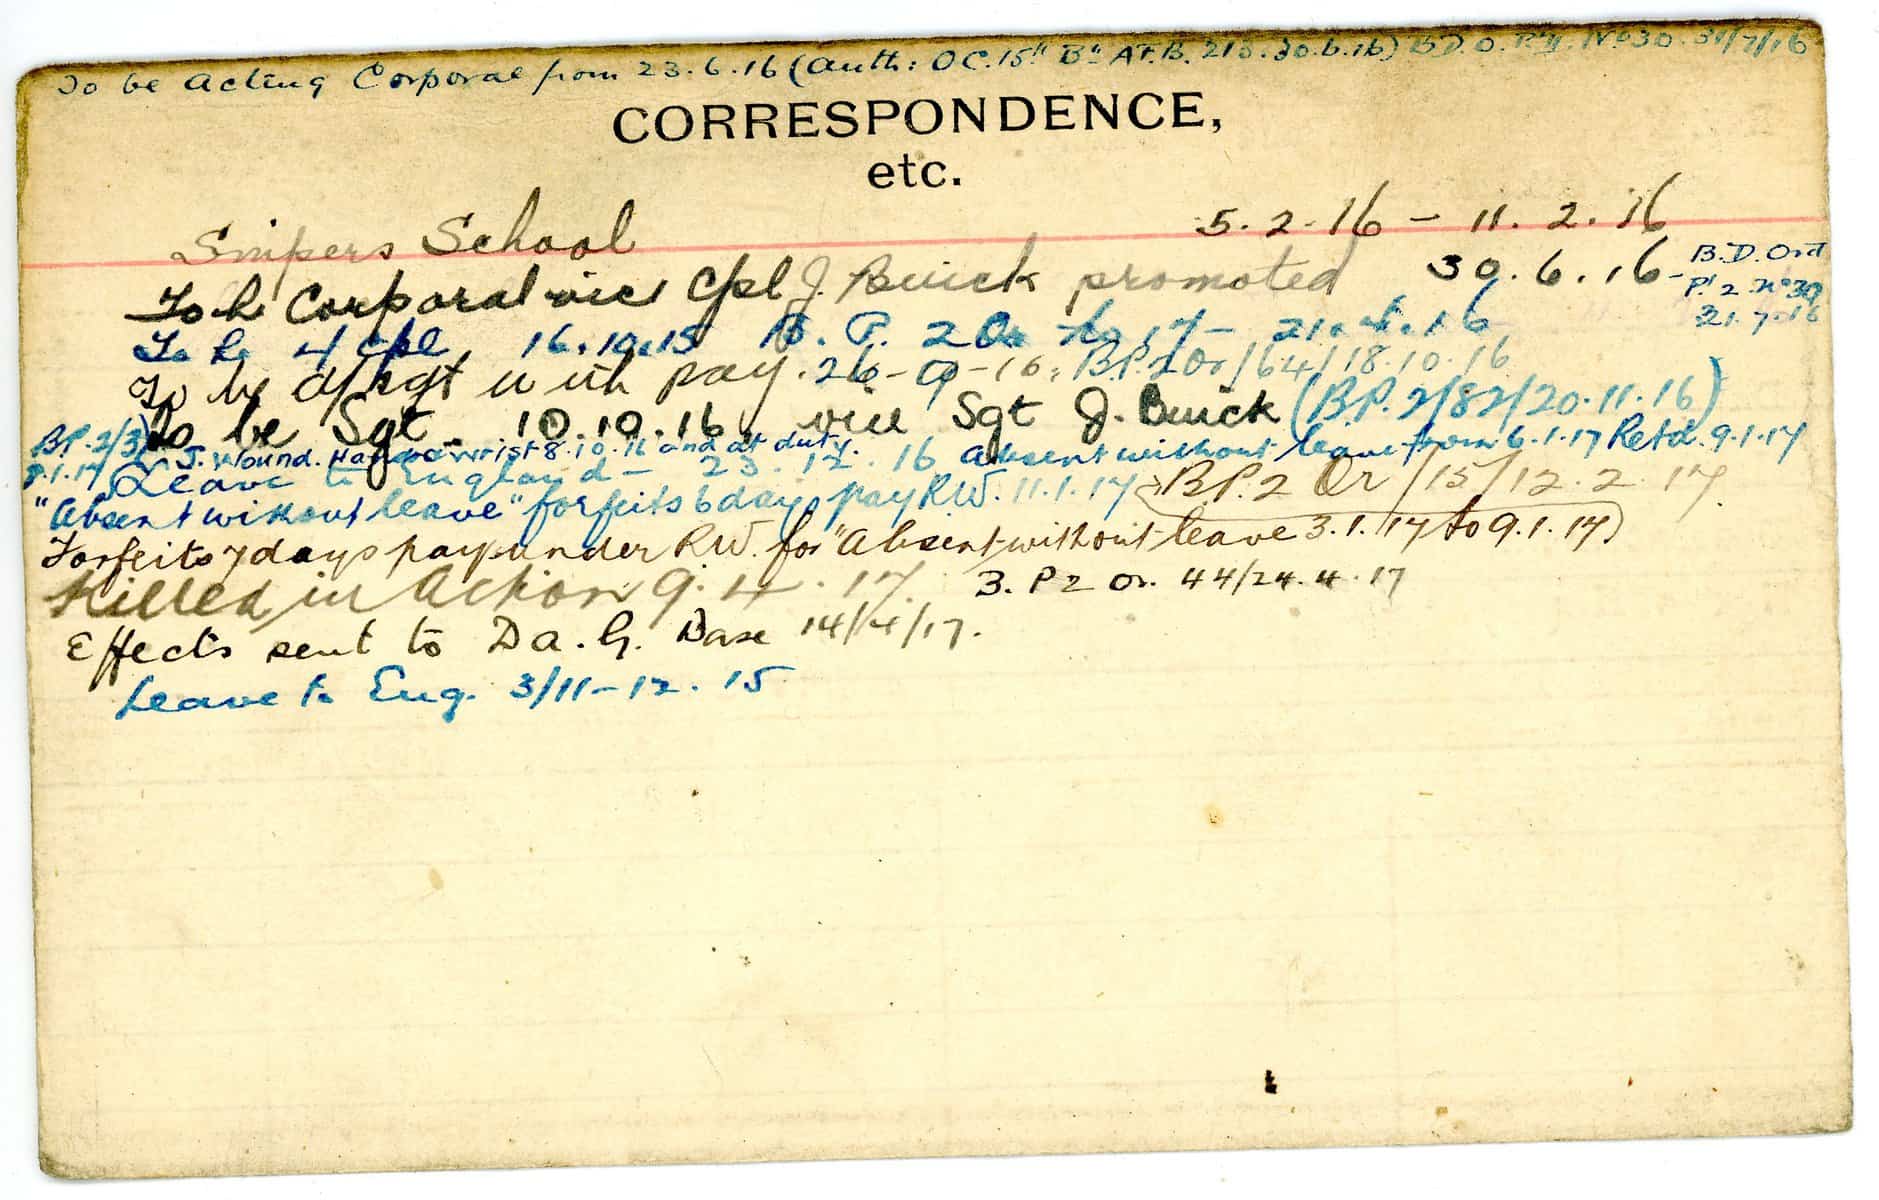 To be Acting Corporal from 23.6.16 (Auth: OC. 15th Bn AF.B. 213. 30.6.16) B.D.O. Pt II. No 30. 31/7/16
CORRESPONDENCE,
etc.
Snipers School 5.2.16 – 11.2.16
To be Corporal vice Cpl J. Buick promoted 30.6.16 – B.D. Ord
Pt 2 No 30
31.7.16
To be Cpl 16.10.15 B.P. 2 Or No 17 – 21.4.16
To be a/Sgt with pay. 26-9-16. B.P. 2 Or/64/18.10.16
To be Sgt – 10.10.16 vice Sgt J. Buick (B.P. 2/82/20.11.16)
B.P. 2/3
8.1.17
Wound. Hand wrist 8.10.16 and at duty.
Leave to England – 23.12.16 Absent without leave from 6.1.17 Retd. 9.1.17
"Absent without leave" forfeits 6 days pay R.W. 11.1.17 B.P. 2 Or/15/12.2.17.
Forfeits 7 days pay under R.W. for "Absent without leave 3.1.17 to 9.1.17)
Killed in Action 9.4.17. B.P 2 Or. 44/24.4.17
Effects sent to D.a.G. Base 14/4/17.
Leave to Eng. 3/11-12.15